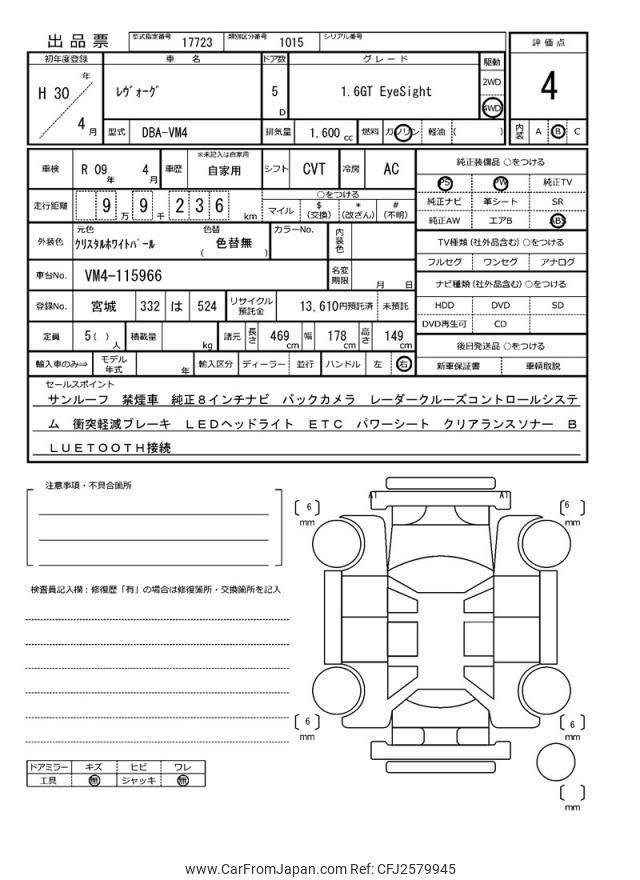 出品票 型式指定番号 17723 類別区分番号 1015 シリアル番号
初年度登録 車名 ドア数 グレード 駆動 評価点
H 30 年 4 月 ﾚヴｫｰｸﾞ 5 D 1.6GT EyeSight 2WD 4WD 4
型式 DBA-VM4 排気量 1.600 cc 燃料 ガソリン 軽油 ( ) 内装 A B C
車検 R 09 年 4 月 車歴 ※未記入は自家用 自家用 シフト CVT 冷房 AC 純正装備品 ○をつける
PS PW 純正TV
走行距離 9 万 9 千 2 3 6 km ○をつける マイル $ (交換) * (改ざん) # (不明) 純正ナビ 革シート SR
純正AW エアB ABS
外装色 元色 ｸﾘｽﾀﾙﾎﾜｲﾄﾊﾟｰﾙ 色替 色替無 ( ) カラーNo. 内装色 TV種類 (社外品含む) ○をつける
フルセグ ワンセグ アナログ
車台No. VM4-115966 名変期限 月 日 ナビ種類 (社外品含む) ○をつける
登録No. 宮城 332 は 524 リサイクル預託金 13,610円預託済 未預託 HDD DVD SD
DVD再生可 CD
定員 5 ( ) 人 積載量 kg 諸元 長さ 469 cm 幅 178 cm 高さ 149 cm 後日発送品 ○をつける
輸入車のみ⇒ モデル年式 年 輸入区分 ディーラー 並行 ハンドル 左 右 新車保証書 車輌取説
セールスポイント
サンルーフ 禁煙車 純正８インチナビ バックカメラ レーダークルーズコントロールシステ
ム 衝突軽減ブレーキ ＬＥＤヘッドライト ＥＴＣ パワーシート クリアランスソナー Ｂ
ＬＵＥＴＯＯＴＨ接続
注意事項・不具合箇所
A1 A1
6 mm 6 mm
検査員記入欄：修復歴「有」の場合は修復箇所・交換箇所を記入
6 mm 6 mm
mm
ドアミラー キズ ヒビ ワレ
工具 無 ジャッキ 無
www.CarFromJapan.com Ref: CFJ2579945